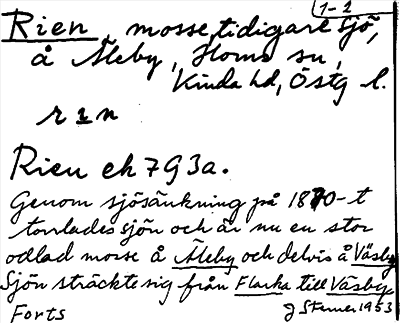 1-2
Rien, mosse, tidigare sjö,
å Åleby, Horns sn,
Kinda hd, Östg l.
rɪn
Rien ek 7 G 3 a.
Genom sjösänkning på 1870-t
torrlades sjön och är nu en stor
odlad mosse å Åleby och delvis å Väsby
Sjön sträckte sig från Flarka till Väsby.
Forts
J Sterner 1953